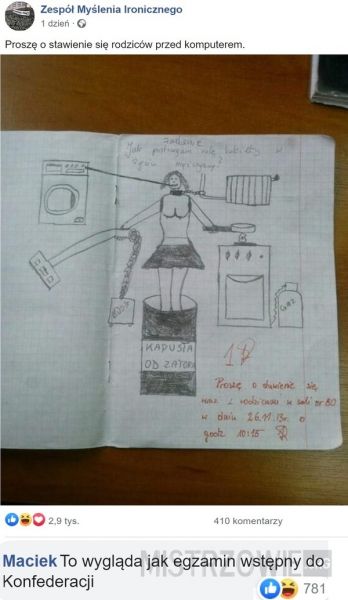 Zespół Myślenia Ironicznego
1 dzień
Proszę o stawienie się rodziców przed komputerem.
Zadanie
Jak postrzegam rolę kobiety w
życiu mężczyzny?
GAZ
KAPUSTA
OD ZATORA
1
Proszę o stawienie się
wraz z rodzicami w sali nr 80
w dniu 26.11.13r. o
godz 10:15
2,9 tys.
410 komentarzy
Maciek To wygląda jak egzamin wstępny do
Konfederacji
MISTRZOWIE
781